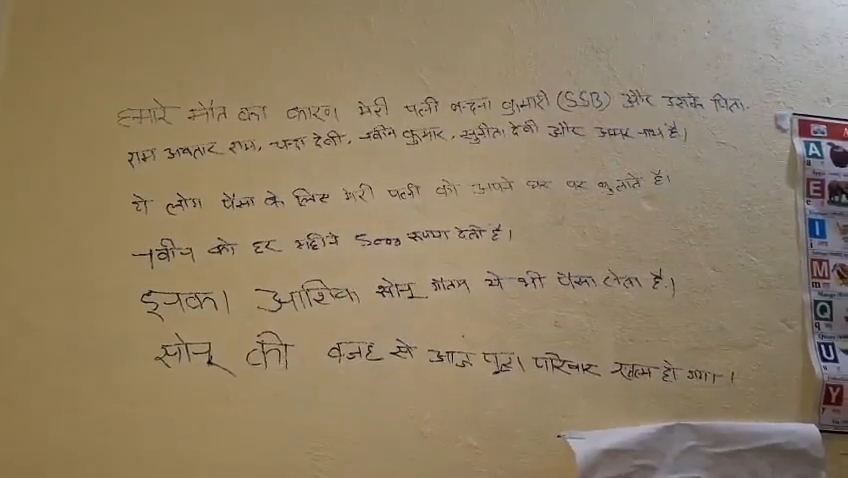 हमारे मौत का कारण मेरी पत्नी वन्दना कुमारी (SSB) और उसके पिता
राम अवतार राम, चन्दा देवी, नवीन कुमार, सुनीता देवी और अमर नाथ है।
ये लोग पैसा के लिए मेरी पत्नी को अपने घर पर बुलाते है।
नवीन को हर महीने 5000 रूपया देती है।
इनका आशिक सोनू गौतम ये भी पैसा लेता है।
सोनू की वजह से आज पूरा परिवार खत्म हो गया।
A
E
I
M
Q
U
Y